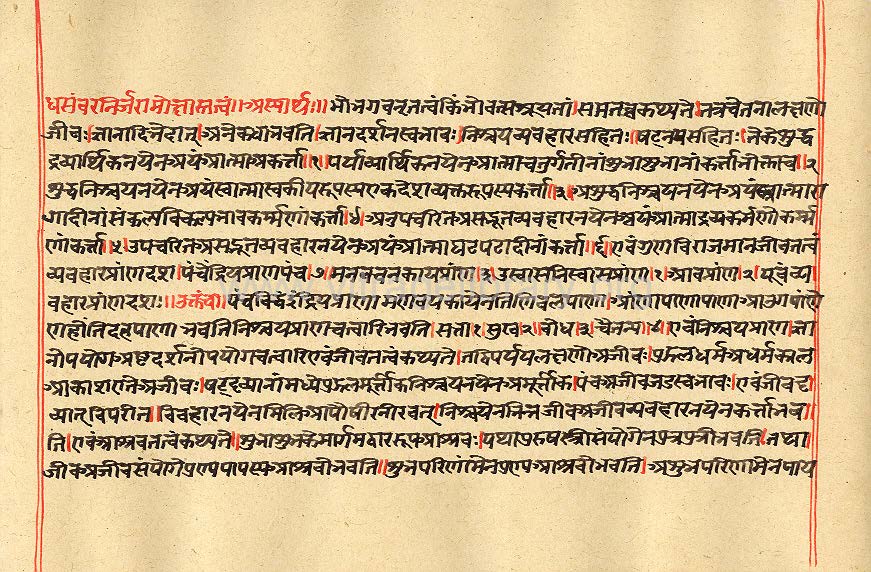 धसंवरनिर्जरामोक्षास्तत्वं॥अस्यार्थः॥भोभगवन्तत्वंकिंभोवत्सश्रूयतां।सप्ततत्वकथ्यते।तत्रचेतनालक्षणो
जीवः।ज्ञानादिभेदात्।अनेकधाभवति।ज्ञानदर्शनस्वभावः।निश्चयव्यवहारसहितः।षट्नयसहितः।नैकेशुद्ध
द्रव्यार्थिकनयेन।अयंआत्माअकर्त्ता।१।पर्यायार्थिकनयेन।आत्माचतुर्गतीनांशुभाशुभानांकर्त्ताभोक्ताच।२
शुद्धनिश्चयनयेन।अयंआत्मास्वकीयरूपस्यएकदेशव्यक्तरूपस्यकर्त्ता।३।अशुद्धनिश्चयनयेन।अयंआत्मारा
गादीनांसंकल्पविकल्पभावकर्म्मणांकर्त्ता।४।अनुपचरितअसद्भूतव्यवहारनयेनअयंआत्माद्रव्यकर्मणोकर्म्म
णांकर्त्ता।५।उपचरितअसद्भूतव्यवहारनयेन।अयंआत्माघटपटादीनांकर्त्ता।६।एवंगुणविराजमानजीवतत्वं
व्यवहारप्राणदश।पंचेंद्रियप्राणपंच।७।मनवचनकायप्राण।३।उस्वासनिस्वासप्राण।१।आवप्राण।२।एवंव्य
वहारप्राणदशः॥उक्तंच॥पंचविइंद्रियप्राणा।मणवयकायेनतिणिबलपाणा।आणापाणपाणा।आउगपाणे
णहोंतिदहपाणा।भवतिनिश्चयप्राणचत्वारिभवति।सत्ता।१।सुख।२।बोध।३।चैतन्य।४।एवंनिश्चयप्राण।ज्ञा
नोपयोगअष्टदर्शनोपयोगचत्वारिएवंजीवतत्वंकथ्यते।तद्विपर्ययलक्षणोअजीवः।पुद्गलधर्मअधर्मकाल
आकाशएतेअजीवः।षट्द्रव्यानांमध्येपुद्गलमूर्त्तीकनिश्चयनयेनअमूर्त्तीक।पंचअजीवजडस्वभावः।एवंजीवद्र
व्यात्विपरीत॥विवहारनयेनमिलिआपोषीरनीरवत्।निश्चयेनभिन्नजीवअजीवव्यवहारनयेनकर्त्ताभव
ति।एवंआश्रवतत्वंकथ्यते।शुभाशुभकर्मागमद्वाररूपआश्रवः।यथापुरुषस्त्रीसंयोगेनपुत्रपुत्रीभवति।तथा
जीवअजीवसंयोगेपुण्यपापरूपआश्रवोभवति॥शुभपरिणामेनपुण्यआश्रवोभवति।अशुभपरिणामेनपाप
www.vitragelibrary.org